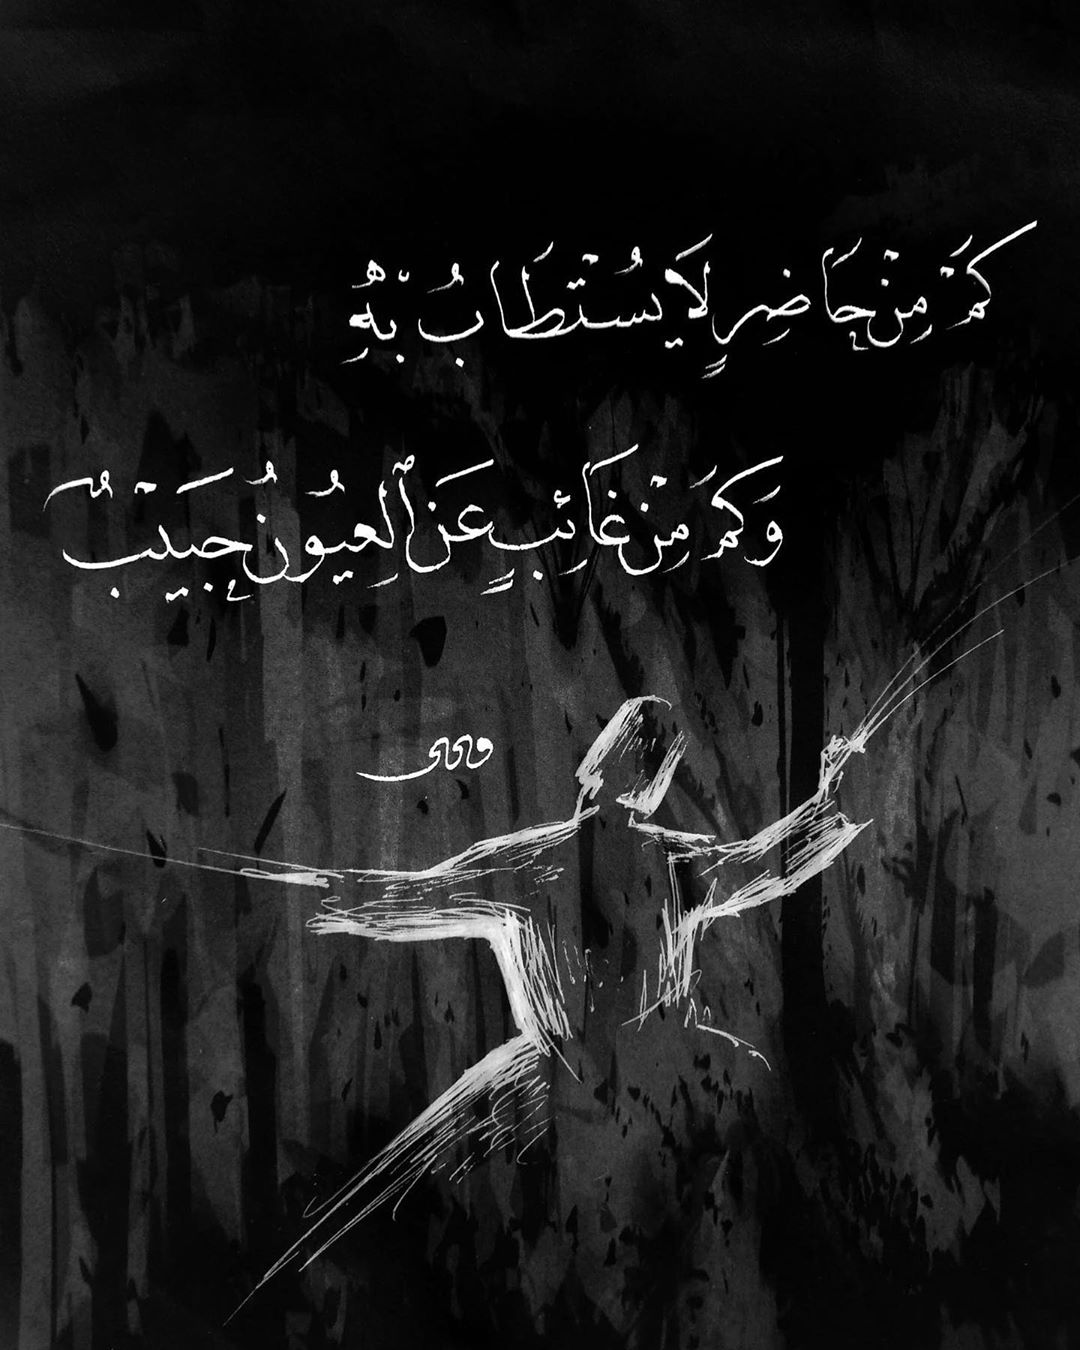 كَمْ مِنْ حَاضِرٍ لَا يُسْتَطَابُ بِهِ
وَكَمْ مِنْ غَائِبٍ عَنِ ٱلْعُيُونِ حَبِيبُ